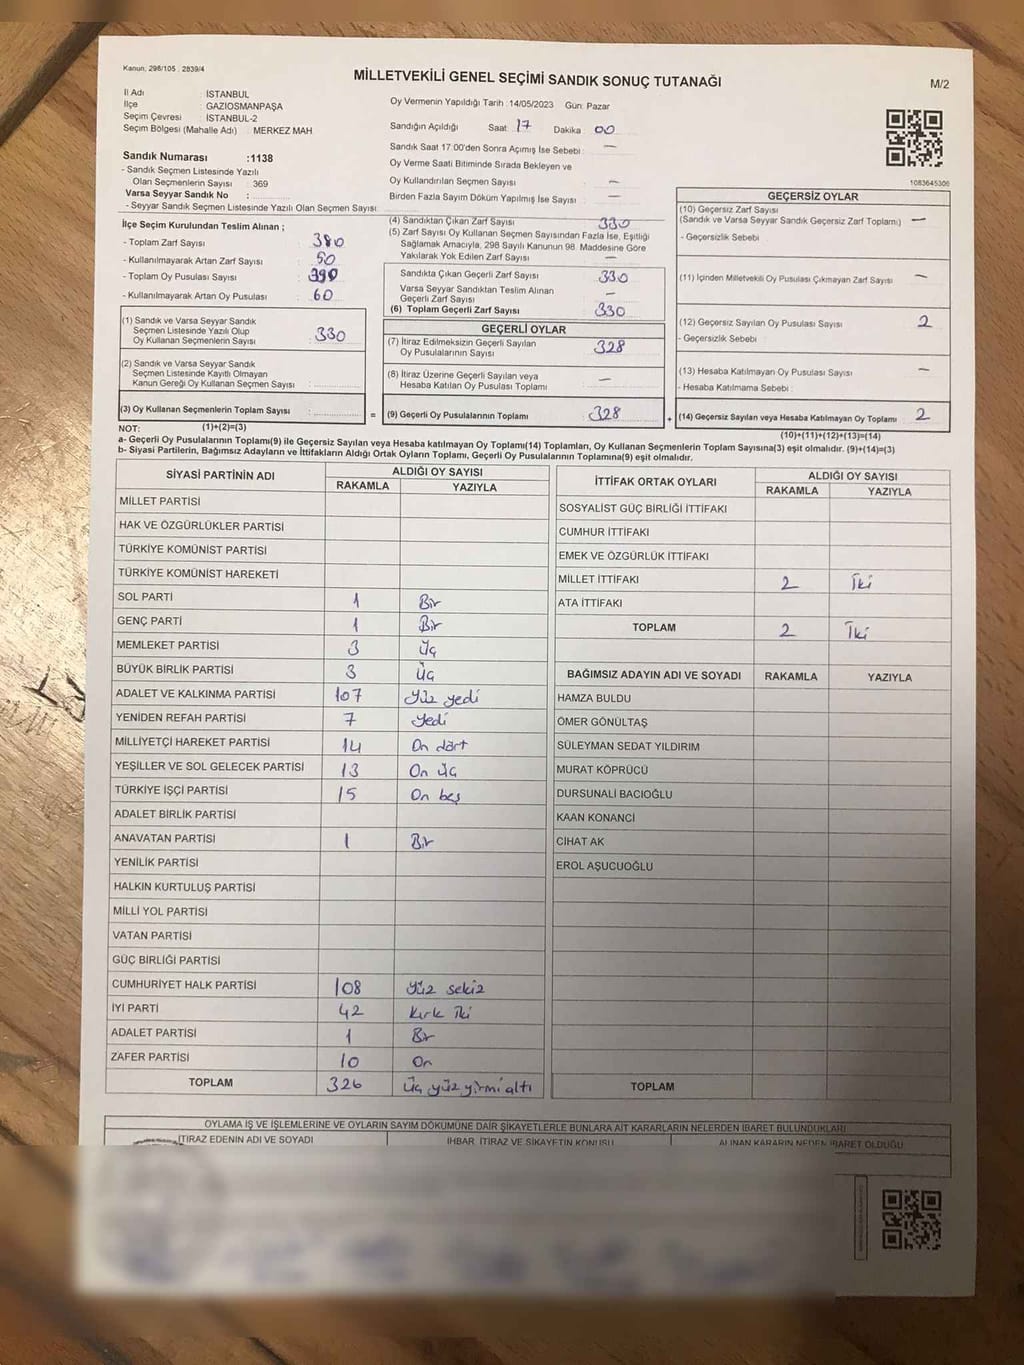 Kanun, 298/105 , 2839/4
MİLLETVEKİLİ GENEL SEÇİMİ SANDIK SONUÇ TUTANAĞI
M/2
İl Adı : İSTANBUL
İlçe : GAZİOSMANPAŞA
Seçim Çevresi : İSTANBUL-2
Seçim Bölgesi (Mahalle Adı) : MERKEZ MAH
Sandık Numarası :1138
- Sandık Seçmen Listesinde Yazılı
Olan Seçmenlerin Sayısı : 369
Varsa Seyyar Sandık No :
- Seyyar Sandık Seçmen Listesinde Yazılı Olan Seçmen Sayısı:
Oy Vermenin Yapıldığı Tarih :14/05/2023 Gün: Pazar
Sandığın Açıldığı Saat : 17 Dakika : 00
Sandık Saat 17 00'den Sonra Açımış İse Sebebi : —
Oy Verme Saati Bitiminde Sırada Bekleyen ve
Oy Kullandırılan Seçmen Sayısı : —
Birden Fazla Sayım Döküm Yapılmış İse Sayısı : —
1083645306
İlçe Seçim Kurulundan Teslim Alınan ;
- Toplam Zarf Sayısı : 380
- Kullanılmayarak Artan Zarf Sayısı : 50
- Toplam Oy Pusulası Sayısı : 390
- Kullanılmayarak Artan Oy Pusulası : 60
(1) Sandık ve Varsa Seyyar Sandık
Seçmen Listesinde Yazılı Olup
Oy Kullanan Seçmenlerin Sayısı : 330
(2) Sandık ve Varsa Seyyar Sandık
Seçmen Listesinde Kayıtlı Olmayan
Kanun Gereği Oy Kullanan Seçmen Sayısı :
(3) Oy Kullanan Seçmenlerin Toplam Sayısı :
(1)+(2)=(3)
(4) Sandıktan Çıkan Zarf Sayısı : 330
(5) Zarf Sayısı Oy Kullanan Seçmen Sayısından Fazla İse, Eşitliği
Sağlamak Amacıyla, 298 Sayılı Kanunun 98. Maddesine Göre
Yakılarak Yok Edilen Zarf Sayısı : —
Sandıkta Çıkan Geçerli Zarf Sayısı : 330
Varsa Seyyar Sandıktan Teslim Alınan
Geçerli Zarf Sayısı : —
(6) Toplam Geçerli Zarf Sayısı : 330
GEÇERLİ OYLAR
(7) İtiraz Edilmeksizin Geçerli Sayılan
Oy Pusulalarının Sayısı : 328
(8) İtiraz Üzerine Geçerli Sayılan veya
Hesaba Katılan Oy Pusulası Toplamı : —
= (9) Geçerli Oy Pusulalarının Toplamı : 328
GEÇERSİZ OYLAR
(10) Geçersiz Zarf Sayısı
(Sandık ve Varsa Seyyar Sandık Geçersiz Zarf Toplamı) : —
- Geçersizlik Sebebi :
(11) İçinden Milletvekili Oy Pusulası Çıkmayan Zarf Sayısı : —
(12) Geçersiz Sayılan Oy Pusulası Sayısı : 2
- Geçersizlik Sebebi :
(13) Hesaba Katılmayan Oy Pusulası Sayısı : —
- Hesaba Katılmama Sebebi :
+ (14) Geçersiz Sayılan veya Hesaba Katılmayan Oy Toplamı : 2
(10)+(11)+(12)+(13)=(14)
NOT:
a- Geçerli Oy Pusulalarının Toplamı(9) ile Geçersiz Sayılan veya Hesaba katılmayan Oy Toplamı(14) Toplamları, Oy Kullanan Seçmenlerin Toplam Sayısına(3) eşit olmalıdır. (9)+(14)=(3)
b- Siyasi Partilerin, Bağımsız Adayların ve İttifakların Aldığı Ortak Oyların Toplamı, Geçerli Oy Pusulalarının Toplamına(9) eşit olmalıdır.
SİYASİ PARTİNİN ADI ALDIĞI OY SAYISI
RAKAMLA YAZIYLA
MİLLET PARTİSİ
HAK VE ÖZGÜRLÜKLER PARTİSİ
TÜRKİYE KOMÜNİST PARTİSİ
TÜRKİYE KOMÜNİST HAREKETİ
SOL PARTİ 1 Bir
GENÇ PARTİ 1 Bir
MEMLEKET PARTİSİ 3 Üç
BÜYÜK BİRLİK PARTİSİ 3 Üç
ADALET VE KALKINMA PARTİSİ 107 Yüz yedi
YENİDEN REFAH PARTİSİ 7 Yedi
MİLLİYETÇİ HAREKET PARTİSİ 14 On dört
YEŞİLLER VE SOL GELECEK PARTİSİ 13 On üç
TÜRKİYE İŞÇİ PARTİSİ 15 On beş
ADALET BİRLİK PARTİSİ
ANAVATAN PARTİSİ 1 Bir
YENİLİK PARTİSİ
HALKIN KURTULUŞ PARTİSİ
MİLLİ YOL PARTİSİ
VATAN PARTİSİ
GÜÇ BİRLİĞİ PARTİSİ
CUMHURİYET HALK PARTİSİ 108 Yüz sekiz
İYİ PARTİ 42 Kırk İki
ADALET PARTİSİ 1 Bir
ZAFER PARTİSİ 10 On
TOPLAM 326 Üç yüz yirmi altı
İTTİFAK ORTAK OYLARI ALDIĞI OY SAYISI
RAKAMLA YAZIYLA
SOSYALİST GÜÇ BİRLİĞİ İTTİFAKI
CUMHUR İTTİFAKI
EMEK VE ÖZGÜRLÜK İTTİFAKI
MİLLET İTTİFAKI 2 İki
ATA İTTİFAKI
TOPLAM 2 İki
BAĞIMSIZ ADAYIN ADI VE SOYADI RAKAMLA YAZIYLA
HAMZA BULDU
ÖMER GÖNÜLTAŞ
SÜLEYMAN SEDAT YILDIRIM
MURAT KÖPRÜCÜ
DURSUNALİ BACIOĞLU
KAAN KONANCİ
CİHAT AK
EROL AŞUCUOĞLU
TOPLAM
OYLAMA İŞ VE İŞLEMLERİNE VE OYLARIN SAYIM DÖKÜMÜNE DAİR ŞİKAYETLERLE BUNLARA AİT KARARLARIN NELERDEN İBARET BULUNDUKLARI
İTİRAZ EDENİN ADI VE SOYADI İHBAR, İTİRAZ VE ŞİKAYETİN KONUSU ALINAN KARARIN NEDEN İBARET OLDUĞU